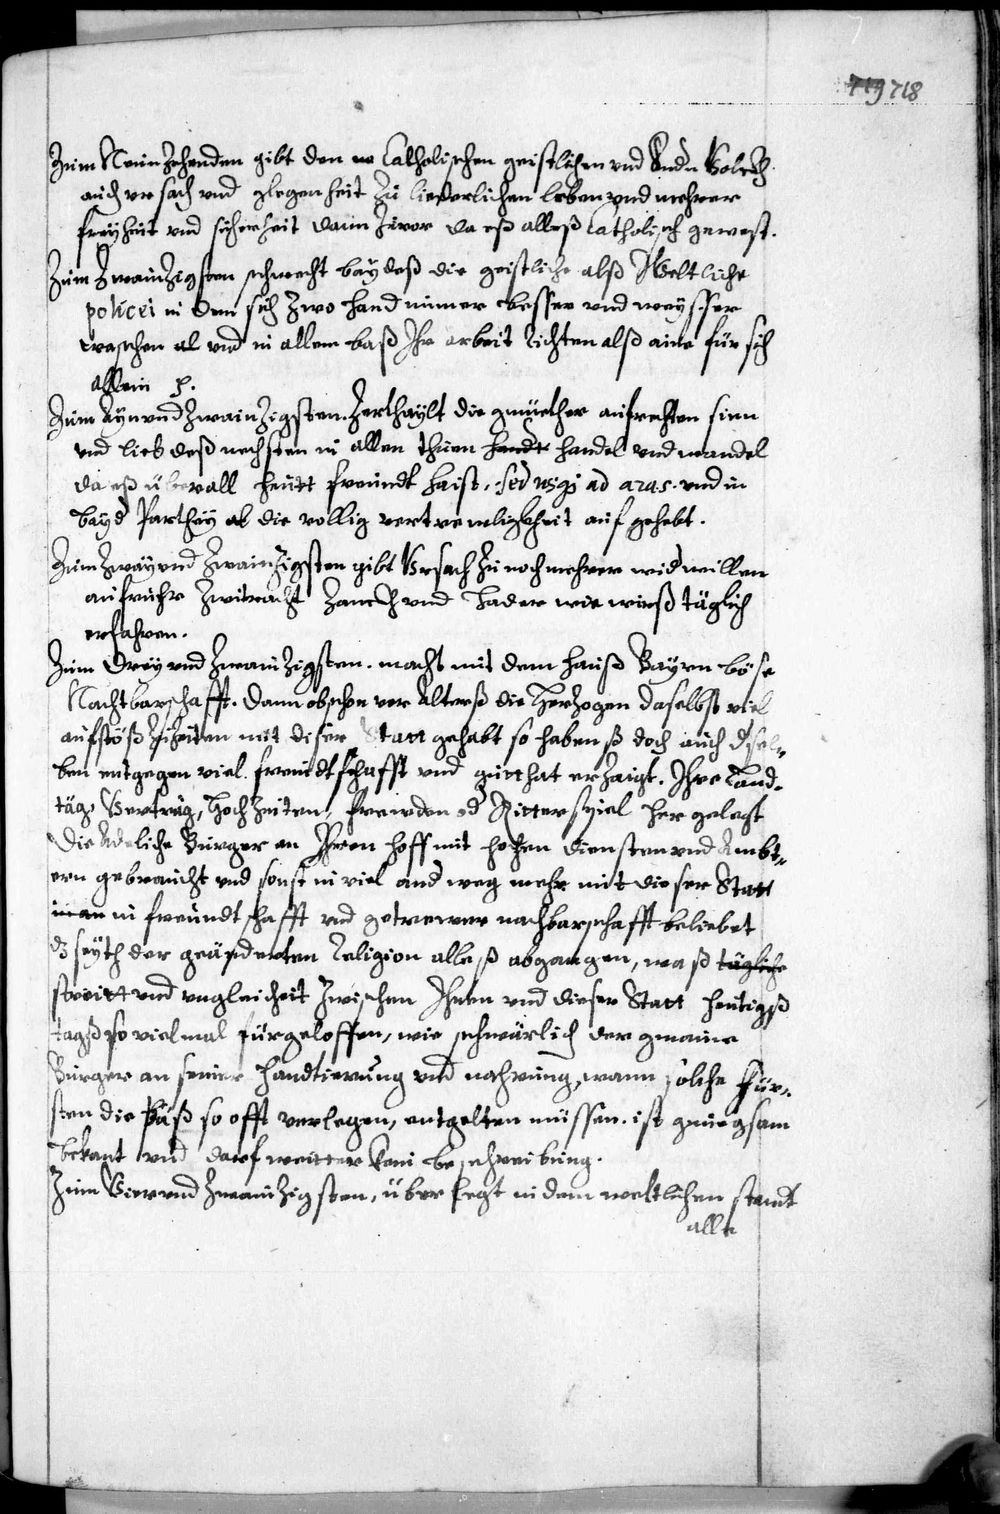 719 718
Zum Neunzehenden gibt den Catholischen geistlichen und
auch ursach und glegenheit zu liederlichen leben und mehrer
freyheit und sicherheit dann zuvor da eß alleß Catholisch gewest.
Zum Zwainzigsten schwecht baydeß die geistliche alß Weltliche
policei in dem sich zwo hand nimer besser und weysser
waschen al und in allem baß Ihr arbeit richten alß aine für sich
allein p.
Zum Aynundzwainzigsten. Zerthaylt die gmüether aufrechten sinn
und lieb deß nechsten in allen thuen handt handel und wandel
da eß überall heütt freundt haist, sed usque ad aras. und in
bayd Parthey al die vollig vertreuligkheit auf gehebt.
Zum Zwayund Zwainzigsten gibt Ursach zu noch mehrer widwillen
aufruhr Zwitracht Zanckh und Hader wie wirß täglich
erfahren.
Zum Drey und Zwainzigsten. macht mit dem hauß Bayrn böse
Nachtbarschafft. Dann obschon vor Alterß die Herzogen daselbst viel
aufstöß zuzeiten mit diser Statt gehabt so habenß doch auch dsel„
ben entgegen viel freundtschafft und gutthat erzaigt. Ihre Land„
täg, Verträg, Hochzeiten, frewden od Ritterspiel her gelegt
Die Adeliche Burger an Ihren hoff mit hohen diensten und Ambt„
ern gebraucht und sonst in viel and weg mehr mit dieser Statt
in an in freundtschafft und getrewer nachbarschafft beliebet
dz seyth der geänderten Religion alleß abgangen, waß tägliche
streitt und ungleicheit zwischen Ihnen und dieser Statt heutigß
tagß so vielmal fürgeloffen, wie schwärlich der gmaine
Burger an seiner handtierung und nahrung, wann solche Für„
sten die Päß so offt verlegen, entgelten müssen. ist gnuegsam
bekant und darf weitter kein beschreibung.
Zum Vierund Zwainzigsten, überlegt in dem weltlichen standt
alle